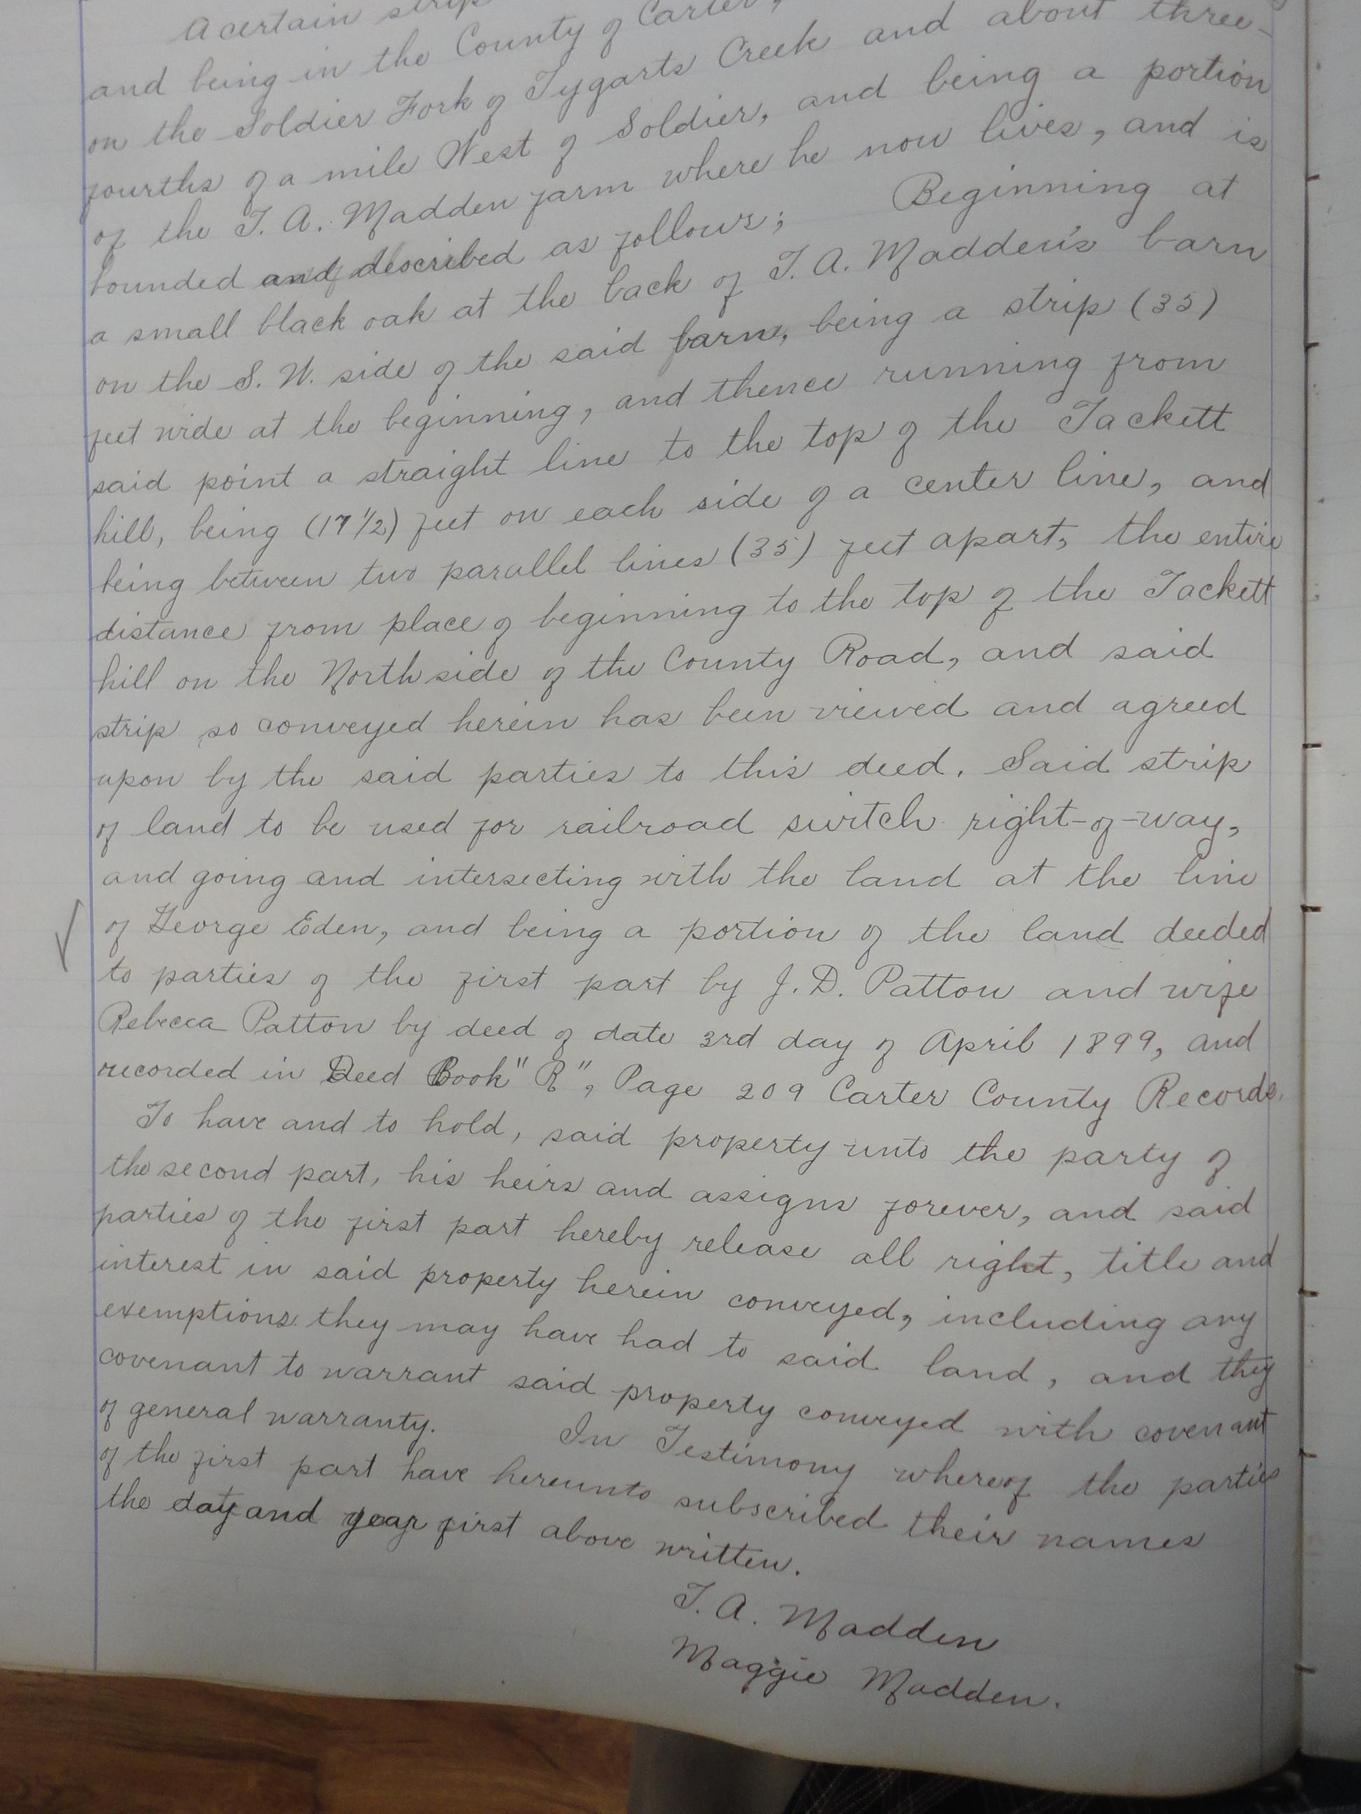 A certain strip
and being in the County of Carter,
on the Soldier Fork of Tygarts Creek and about three-
fourths of a mile West of Soldier, and being a portion
of the T. A. Madden farm where he now lives, and is
bounded and described as follows; Beginning at
a small black oak at the back of T. A. Madden's barn
on the S. W. side of the said barn, being a strip (35)
feet wide at the beginning, and thence running from
said point a straight line to the top of the Tackett
hill, being (17 1/2) feet on each side of a center line, and
being between two parallel lines (35) feet apart, the entire
distance from place of beginning to the top of the Tackett
hill on the North side of the County Road, and said
strip so conveyed herein has been viewed and agreed
upon by the said parties to this deed. Said strip
of land to be used for railroad switch right-of-way,
and going and intersecting with the land at the line
of George Eden, and being a portion of the land deeded
to parties of the first part by J. D. Patton and wife
Rebecca Patton by deed of date 3rd day of April 1899, and
recorded in Deed Book "R", Page 209 Carter County Records.
To have and to hold, said property unto the party of
the second part, his heirs and assigns forever, and said
parties of the first part hereby release all right, title and
interest in said property herein conveyed, including any
exemptions they may have had to said land, and they
covenant to warrant said property conveyed with covenant
of general warranty. In Testimony whereof the parties
of the first part have hereunto subscribed their names
the day and year first above written.
T. A. Madden
Maggie Madden.